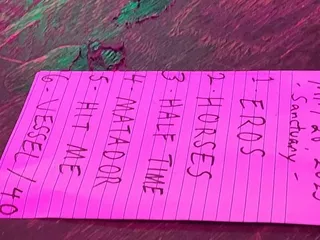 Sanctuary -
1- EROS
2- HORSES
3- HALF TIME
4- MATADOR
5- HIT ME
6- VESSEL / 40